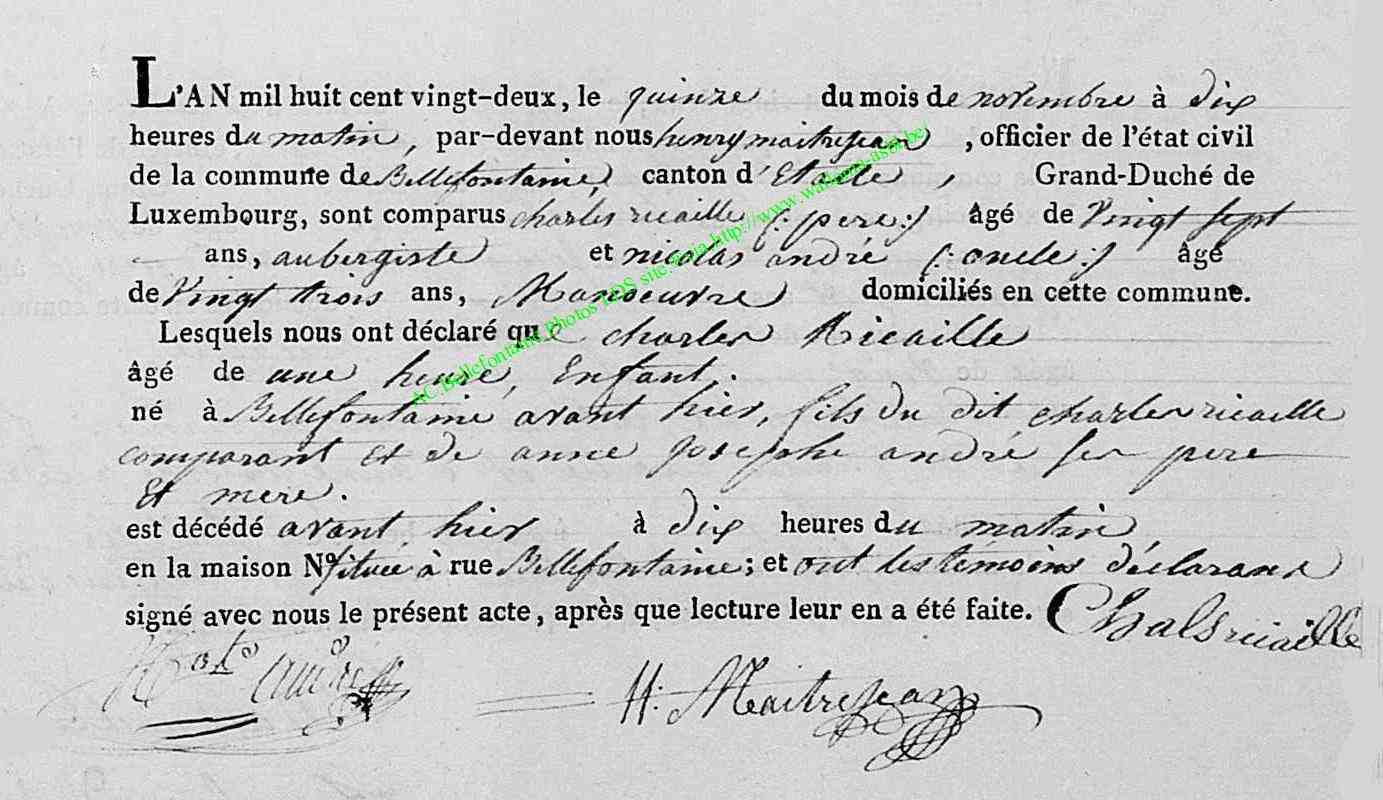 L'AN mil huit cent vingt-deux, le quinze du mois de novembre à dix
heures du matin, par-devant nous henry maitrejean, officier de l'état civil
de la commune de Bellefontaine, canton d'Etalle, Grand-Duché de
Luxembourg, sont comparus charles ricaille (: pere :) âgé de Vingt sept
ans, aubergiste et nicolas andré (: oncle :) âgé
de Vingt trois ans, Manoeuvre domiciliés en cette commune.
Lesquels nous ont déclaré que charles Ricaille
âgé de une heure, Enfant.
né à Bellefontaine avant hier, fils du dit charles ricaille
comparant et de anne josephe andré ses pere
Et mere.
est décédé avant hier à dix heures du matin
en la maison No. située à rue Bellefontaine; et ont les témoins déclarans
signé avec nous le présent acte, après que lecture leur en a été faite. Chals ricaille
andré H: Maitrejean
AC Bellefontaine Photos LDS site Geja http://www.wallonia-asbl.be/